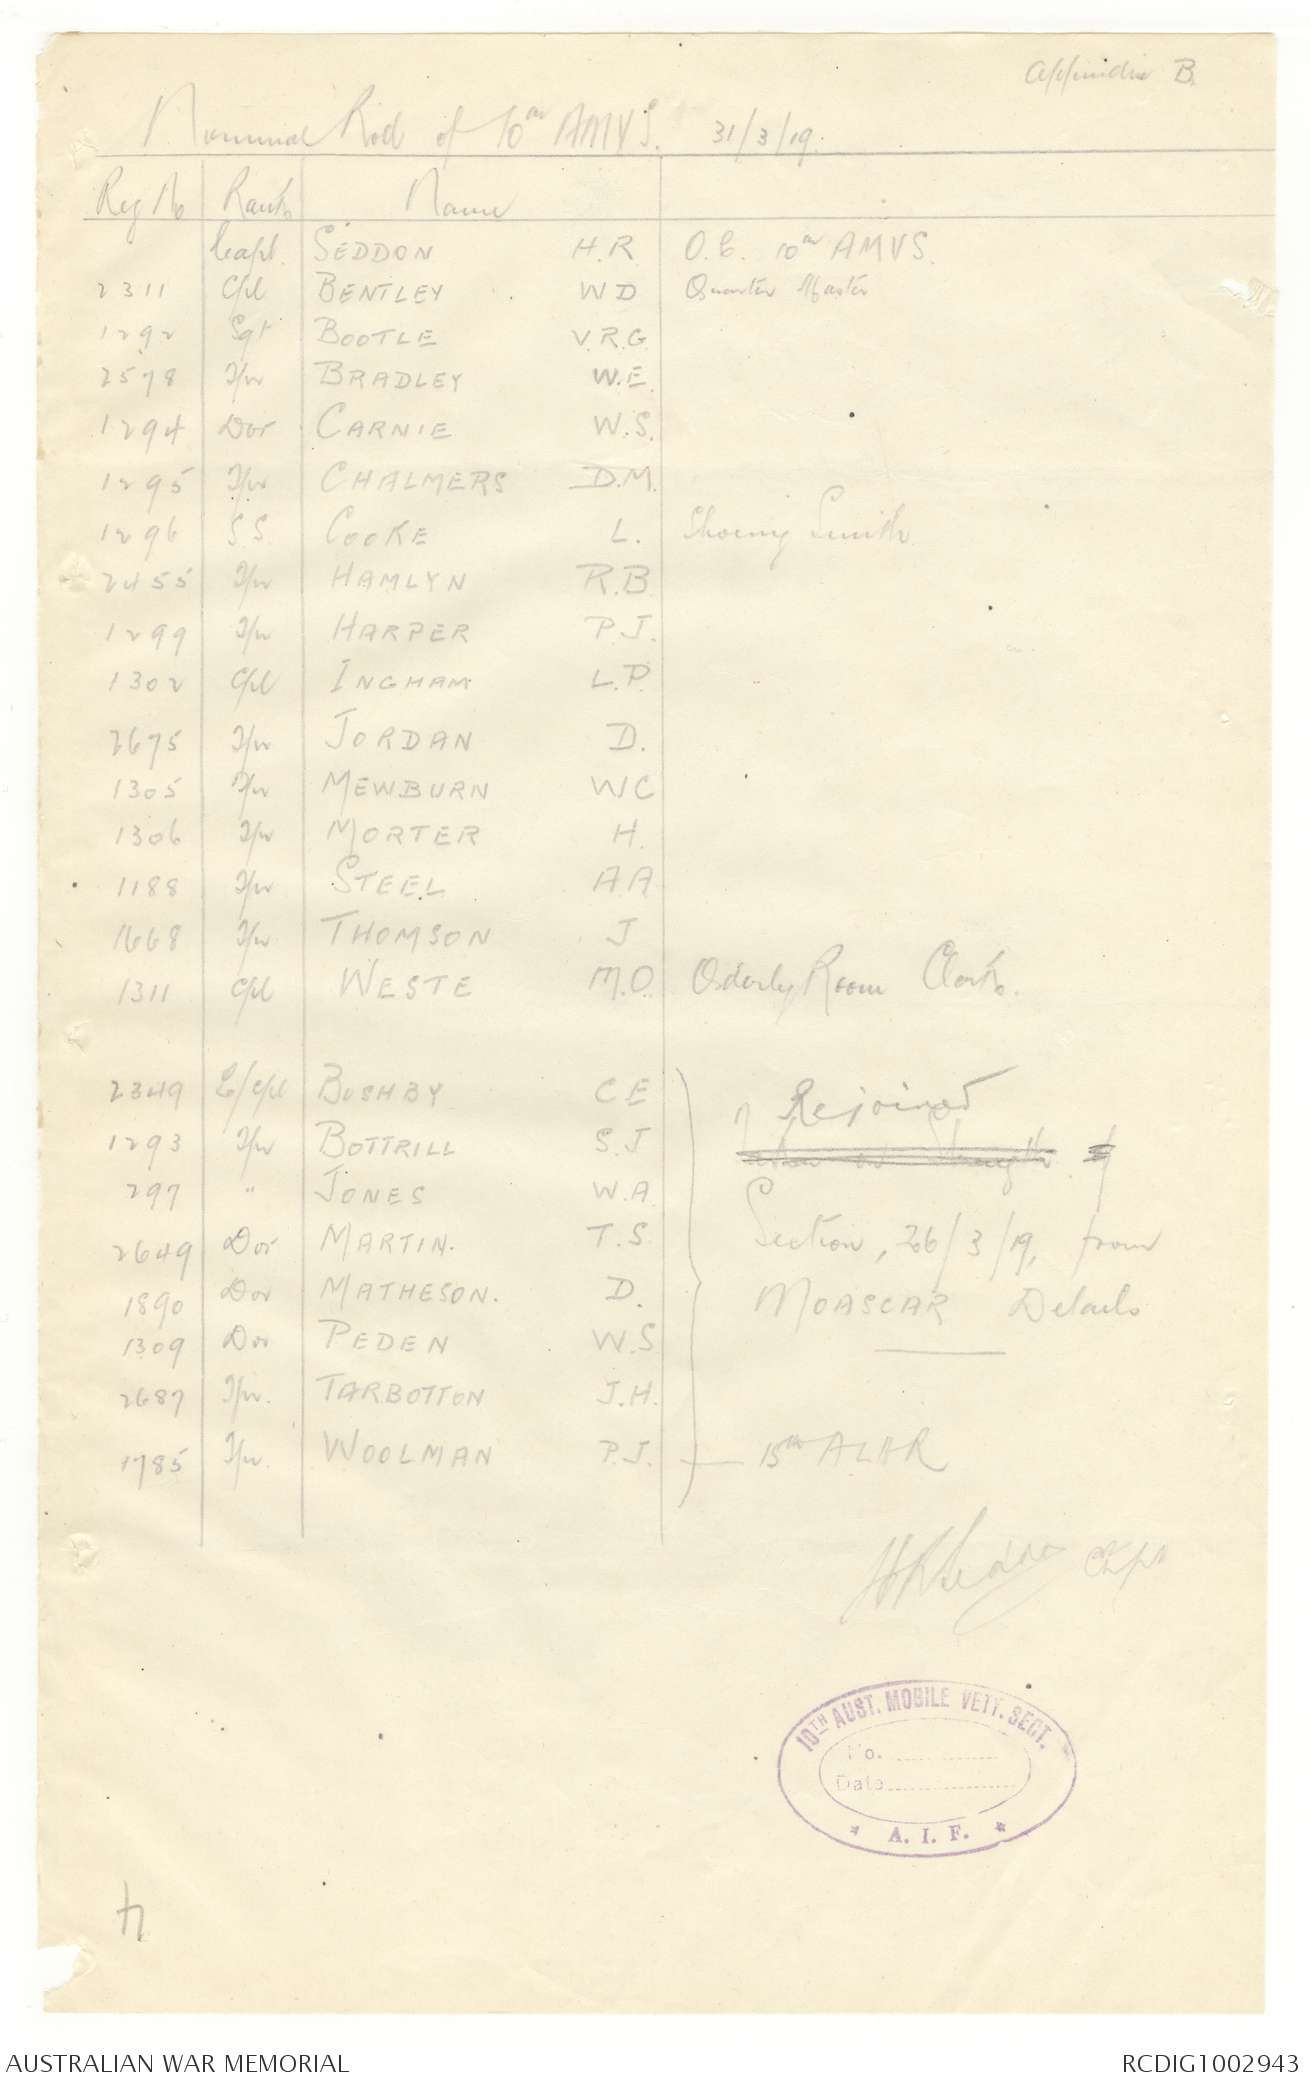 Appendix B.
Nominal Roll of 10th AMVS. 31/3/19.
Reg No Rank Name
Capt. SEDDON H.R. O.C. 10th AMVS.
2311 Cpl BENTLEY W D Quarter Master
1292 Sgt BOOTLE V.R.G.
2578 Tpr BRADLEY W.E.
1294 Dvr CARNIE W.S.
1295 Tpr CHALMERS D.M.
1296 S.S. COOKE L. Shoeing Smith
2455 Tpr HAMLYN R.B
1299 Tpr HARPER P.J.
1302 Cpl INGHAM L.P.
2675 Tpr JORDAN D.
1305 Tpr MEWBURN WC
1306 Tpr MORTER H.
1188 Tpr STEEL A.A
1668 Tpr THOMSON J
1311 Cpl WESTE M.O. Orderly Room Clerk.
2349 L/Cpl BUSHBY C E
Rejoined
1293 Tpr BOTTRILL S.J
Strength of
297 " JONES W.A
2649 Dvr MARTIN. T.S. Section, 26/3/19, from
1890 Dvr MATHESON. D. MOASCAR Details
1309 Dvr PEDEN W.S
2687 Tpr. TARBOTTON J.H.
1785 Tpr. WOOLMAN P.J. — 15th ALHR
HRSeddon Capt
10TH AUST. MOBILE VETY. SECT.
No. ............
Date ............
* A. I. F. *
4
AUSTRALIAN WAR MEMORIAL RCDIG1002943